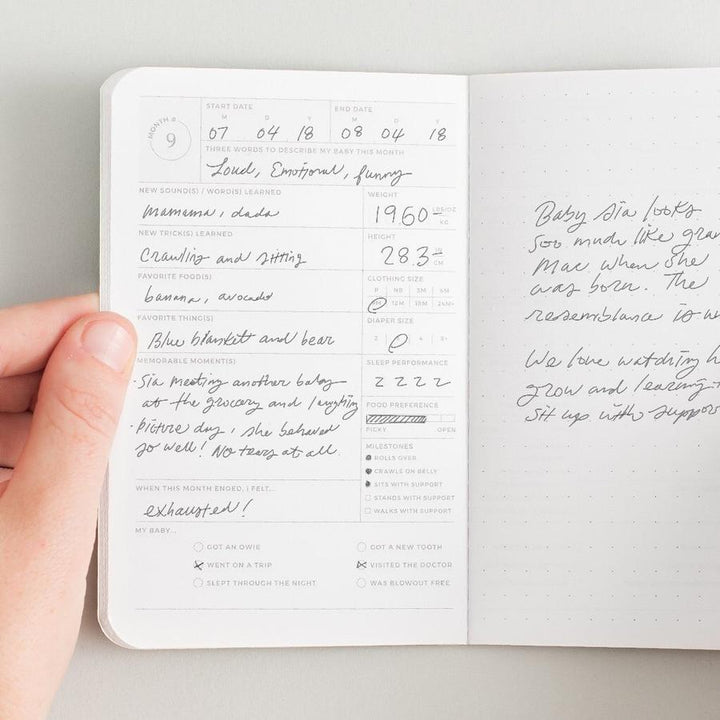 MONTH # 9
START DATE END DATE
M D Y M D Y
07 04 18 08 04 18
THREE WORDS TO DESCRIBE MY BABY THIS MONTH
Loud, Emotional, funny
NEW SOUND(S) / WORD(S) LEARNED
mamama, dada
WEIGHT
19.60 LBS/OZ KG
NEW TRICK(S) LEARNED
Crawling and sitting
HEIGHT
28.3 IN CM
FAVORITE FOOD(S)
banana, avocado
CLOTHING SIZE
P NB 3M 6M
9M 12M 18M 24M+
FAVORITE THING(S)
Blue blankett and bear
DIAPER SIZE
2 4 5+
MEMORABLE MOMENT(S)
· Sia meeting another baby
at the grocery and laughing
· Picture day, she behaved
so well! No tears at all
SLEEP PERFORMANCE
Z Z Z Z
FOOD PREFERENCE
PICKY OPEN
MILESTONES
ROLLS OVER
CRAWLS ON BELLY
SITS WITH SUPPORT
STANDS WITH SUPPORT
WALKS WITH SUPPORT
WHEN THIS MONTH ENDED, I FELT...
exhausted!
MY BABY...
GOT AN OWIE GOT A NEW TOOTH
WENT ON A TRIP VISITED THE DOCTOR
SLEPT THROUGH THE NIGHT WAS BLOWOUT FREE
Baby Sia looks
soo much like gran
Mac when she
was born. The
resemblance is
We love watching
grow and learning
sit up with suppor